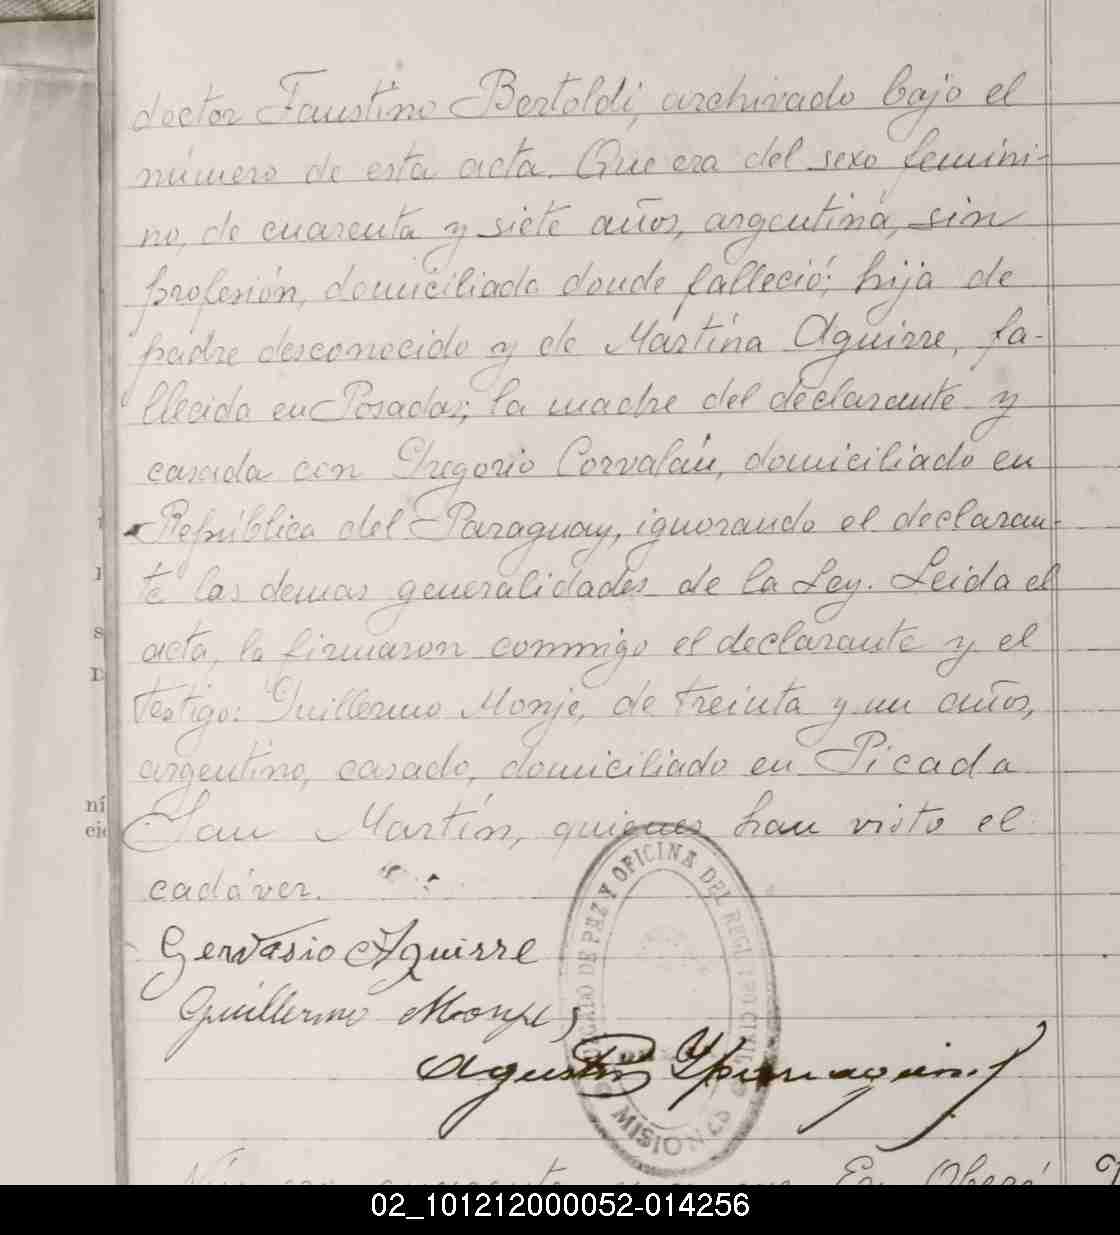 doctor Faustino Bertoldi, archivado bajo el
número de esta acta. Que era del sexo femini-
no, de cuarenta y siete años, argentina, sin
profesión, domiciliada donde falleció; hija de
padre desconocido y de Martina Aguirre, fa-
llecida en Posadas; la madre del declarante y
casada con Gregorio Corvalán, domiciliado en
República del Paraguay, ignorando el declaran-
te las demas generalidades de la Ley. Leida el
acta, la firmaron conmigo el declarante y el
testigo: Guillermo Monje, de treinta y un años,
argentino, casado, domiciliado en Picada
San Martín, quienes han visto el
cadáver.
Gervasio Aguirre
Guillermo Monje
Agustín
JUZGADO DE PAZ Y OFICINA DEL REGISTRO CIVIL
MISIONES
ní
cio
En Oberá
02_101212000052-014256